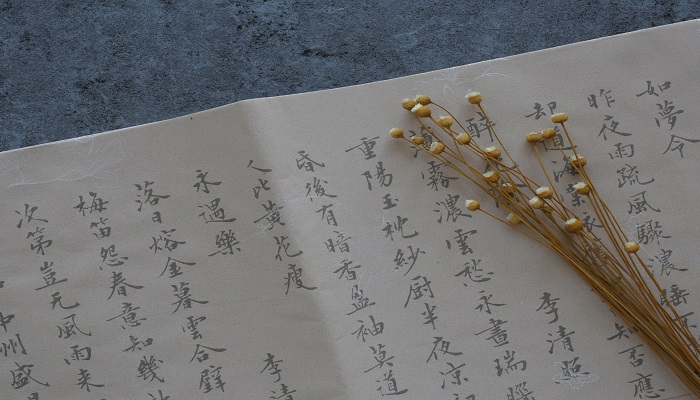 如夢令
昨夜雨疏風驟濃睡不
却道海棠 知否應
醉 李清照
薄霧濃雲愁永晝瑞腦
重陽玉枕紗厨半夜凉初
昏後有暗香盈袖莫道
人比黃花瘦
永遇樂 李清
落日熔金暮雲合璧
梅笛怨春意知幾
次第豈无風雨来
中州盛